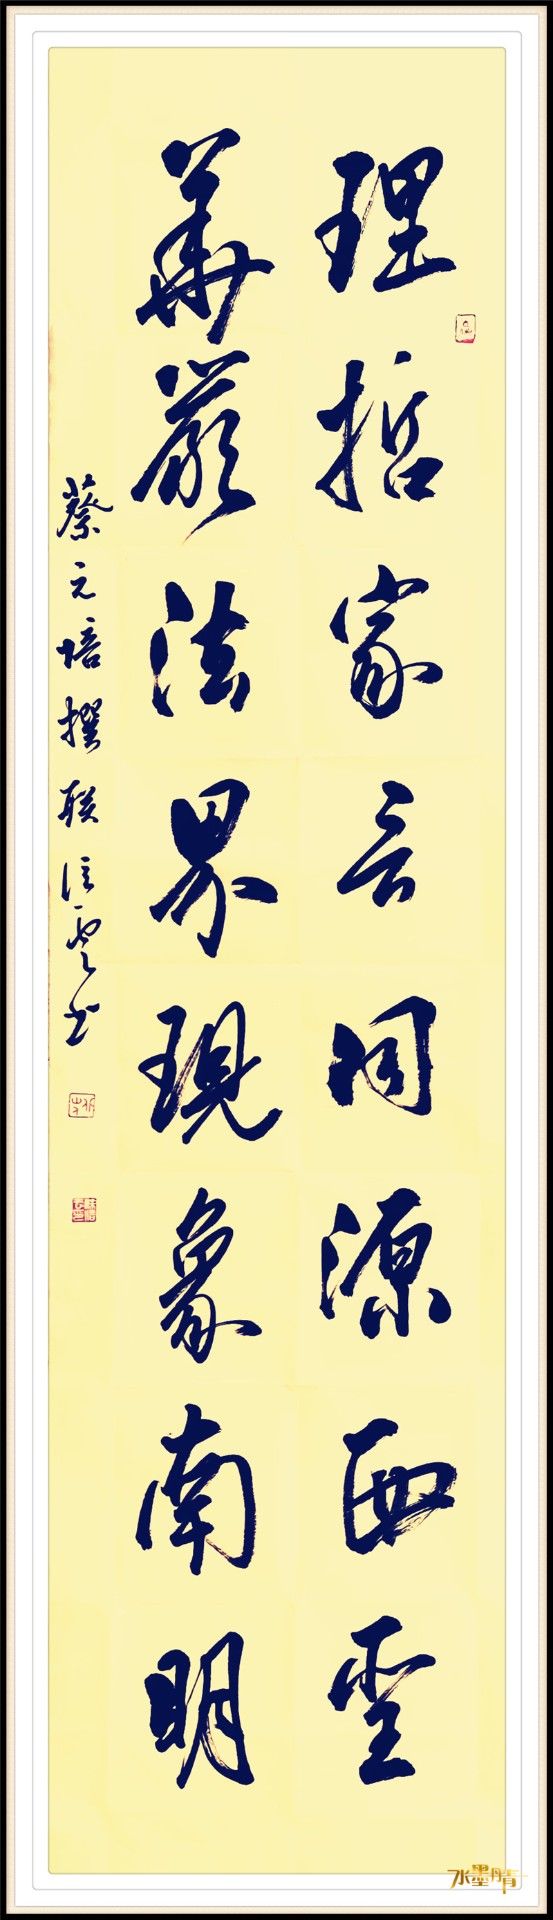 理哲家言同源西聖
華嚴法界現象南明
蔡元培撰联信雲书
水墨丹青